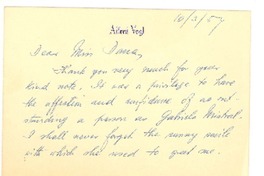 10/3/57
Aileni Vogl
Dear Miss Dana,
Thank you very much for your
kind note. It was a privilege to have
the affection and confidence of as out
standing a person as Gabriela Mistral.
I shall never forget the sunny smile
with which she used to greet me.